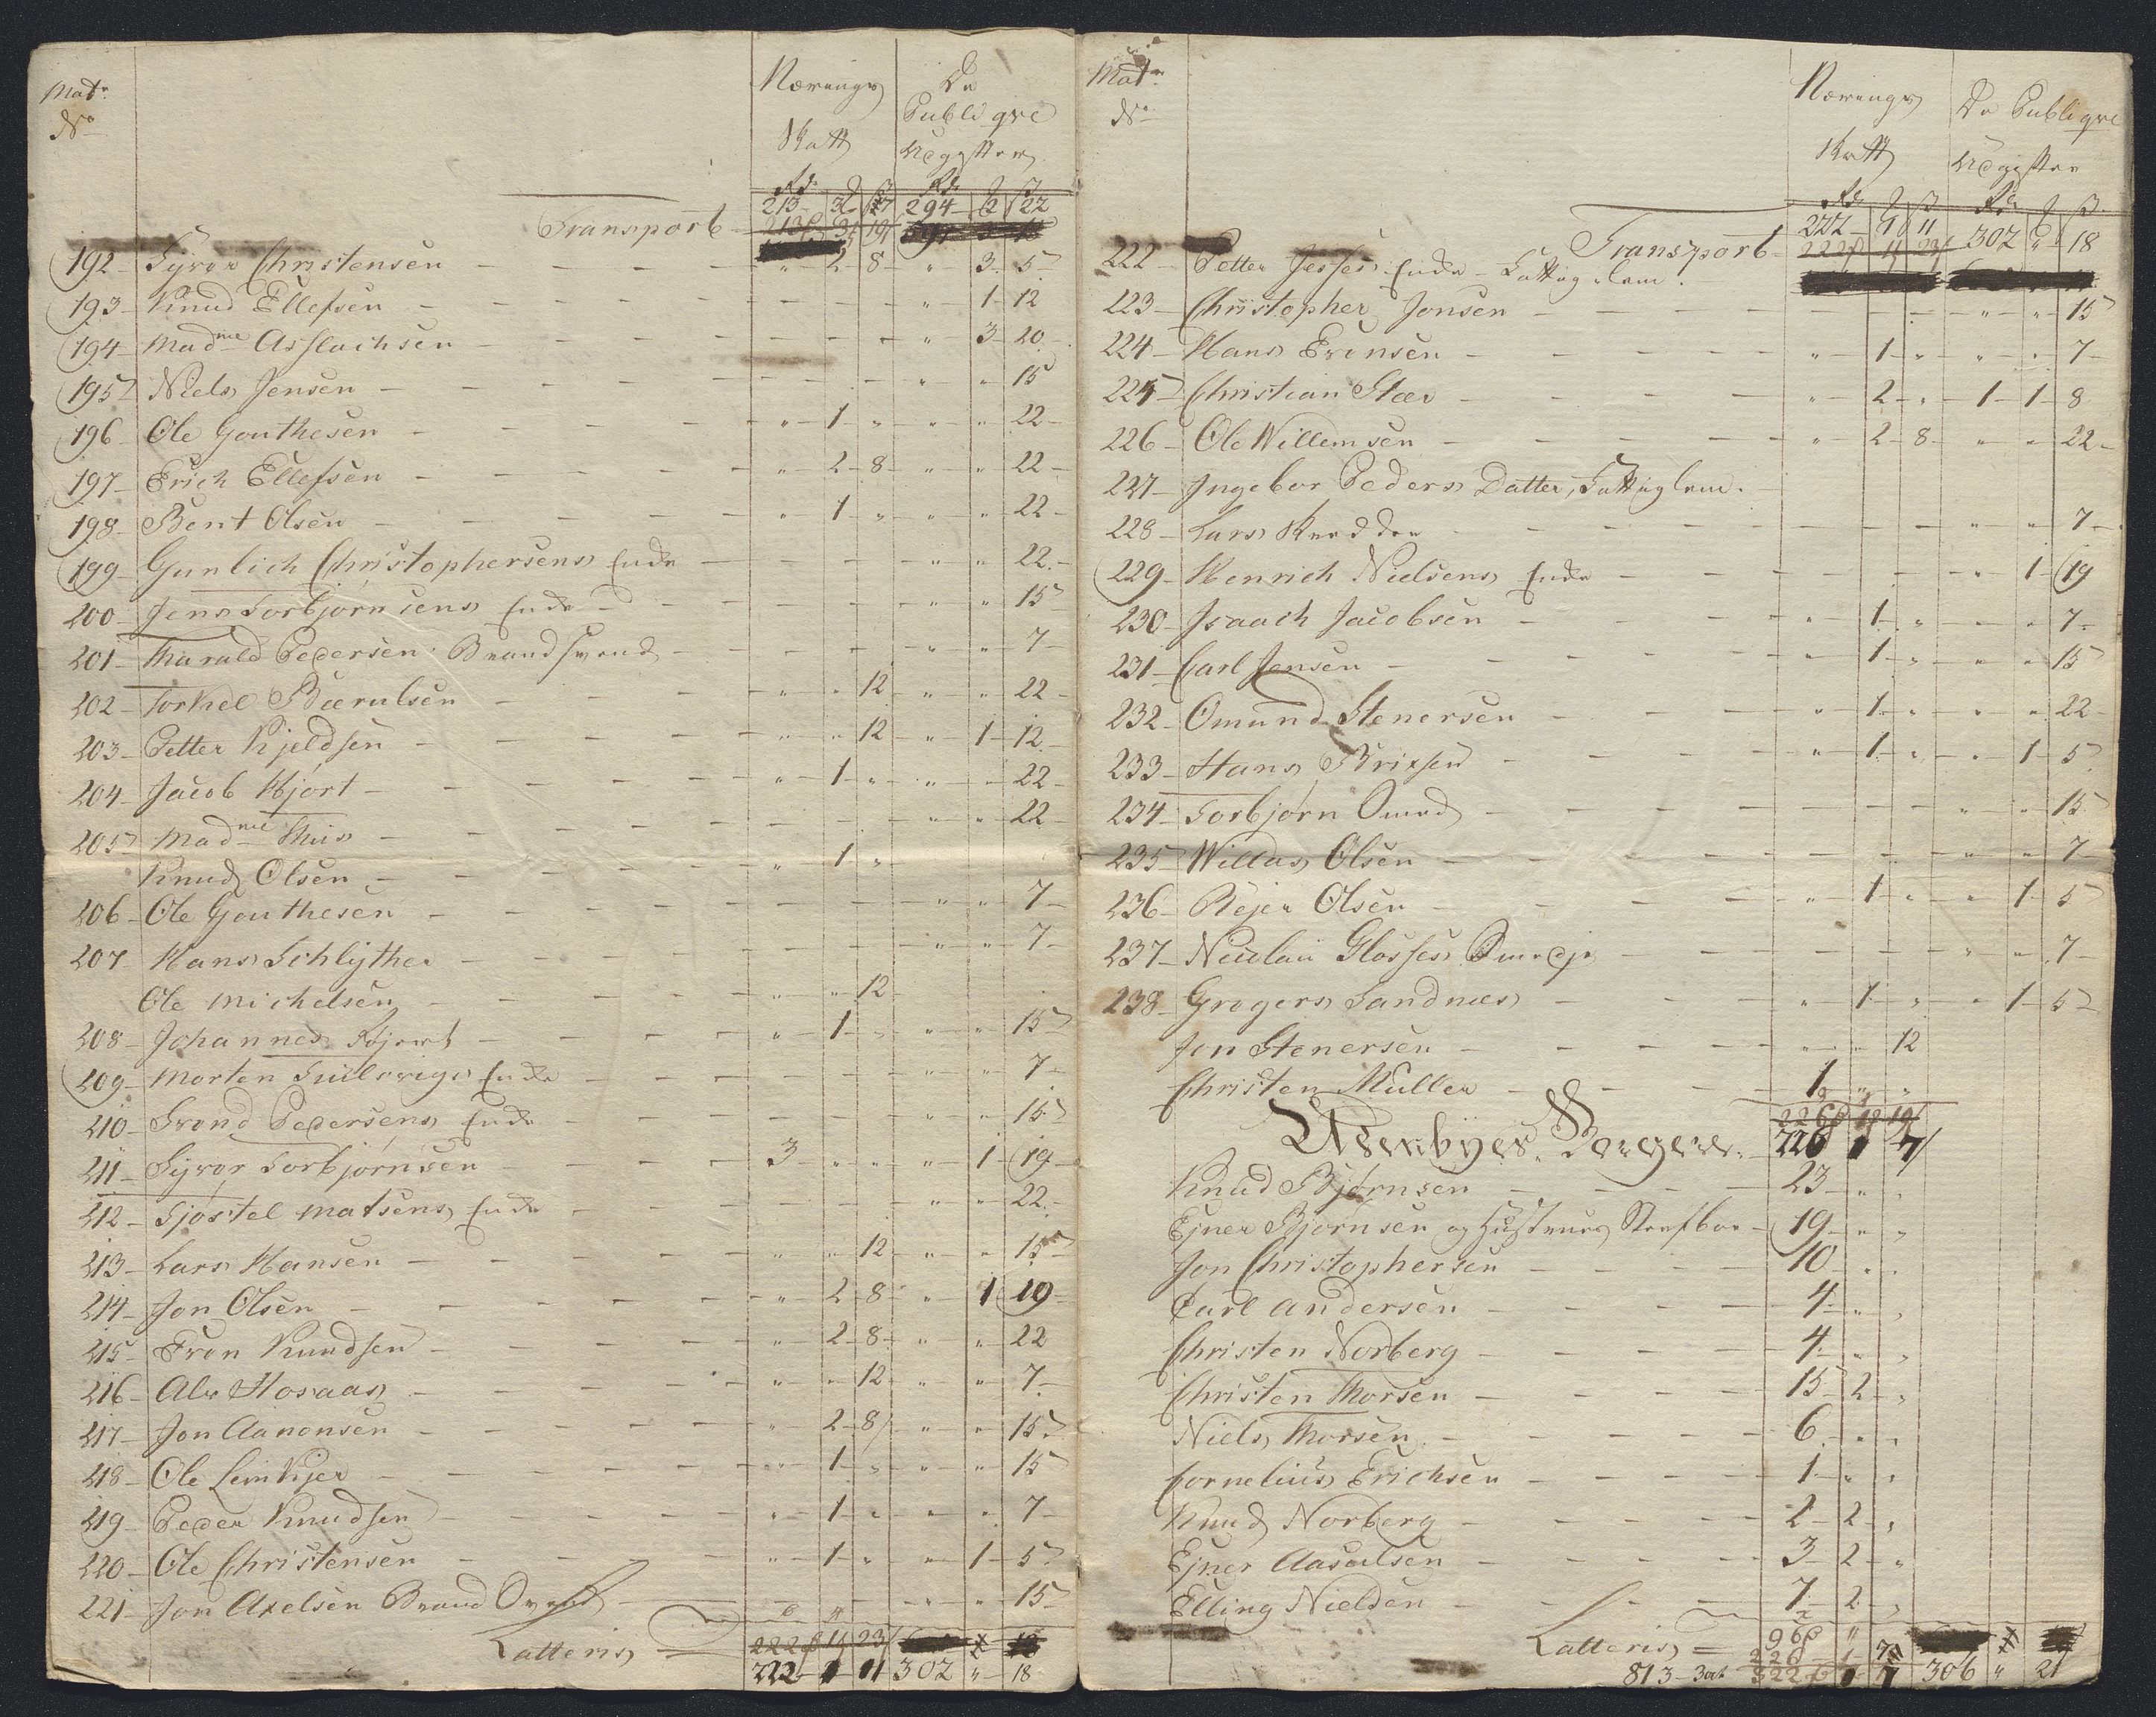 Matr No
Nærings Skatt
De Publiqve Udgifter
Rd. 213 - 3 - 17 294 - 2 - 22
Transport
192 Syver Christensen " 2 8 " 3 5
193 Knud Ellefsen " 1 12
194 Madme Asslachsen " 3 20
195 Niels Jensen " " 15
196 Ole Gouthesen " 1 " " " 22
197 Erich Ellefsen " 2 8 " " 22
198 Bent Olsen " 1 " " " 22
199 Gunlich Christophersens Enke " " 22
200 Jens Torbjørnsens Enke " " 15
201 Tharald Pedersen Brandsvend " " 7
202 Torkel Bærulsen " " 12 " " 22
203 Petter Kjeldsen " " 12 " 1 12
204 Jacob Hjort " 1 " " " 22
205 Madme Thiis " " 22
Knud Olsen " 1 "
206 Ole Gouthesen " " 7
207 Hans Schlyther " " 7
Ole Michelsen " " 12
208 Johannes " 1 " " " 15
209 Morten Enke " " 7
210 Trond Pedersens Enke " " 15
211 Syver Torbjørnsen 3 " " " 1 19
212 Sjøstel Matsens Enke " " 22
213 Lars Hansen " " 12 " " 15
214 Jon Olsen " 2 8 " 1 19
215 Even Knudsen " 2 8 " " 22
216 Alv Hosaas " " 12 " " 7
217 Jon Aanonsen " 2 8 " " 15
218 Ole Leinkjer " 1 " " " 15
219 Peder Knudsen " 1 " " " 7
220 Ole Christensen " 1 " " 1 5
221 Jon Axelsen Brand " " 15
Latteris
222 1 11 302 " 18
Matr No
Nærings Skatt
De Publiqve Udgifter
222 1 11 302 " 18
Transport
222 Petter Jesses Enke Fattiglem.
223 Christopher Jonsen " " 15
224 Hans Evensen " 1 " " " 7
225 Christian Stær " 2 " 1 1 8
226 Ole Willemsen " 2 8 " " 22
227 Ingebor Peders Datter, Fattiglem.
228 Lars " " 7
229 Henrich Nielsens Enke " 1 19
230 Isaach Jacobsen " 1 " " " 7
231 Carl Jensen " 1 " " " 15
232 Omund Stenersen " 1 " " " 22
233 Hans Brixsen " 1 " " 1 5
234 Torbjørn " " 15
235 Willas Olsen " " 7
236 Rejer Olsen " 1 " " 1 5
237 Nicolai Glosses " " 7
238 Gregers Sandnæs " 1 " " 1 5
Jon Stenersen " " 12
Christen Muller 1 " "
Udenbyes Borgere. 226 1 7
Knud Bjørnsen 23 " "
Ejner Bjørnsen og Hustrues 19 " "
Jon Christophersen 10 " "
Carl Andersen 4 " "
Christen Norberg 4 " "
Christen Thorsen 15 2 "
Niels Thorsen 6 " "
Cornelius Erichsen 1 " "
Knud Norberg 2 2 "
Ejner Aasulsen 3 2 "
Elling Nielsen 7 2 "
Latteris = 96
226 1 7
813 322 1 7 306 " 21